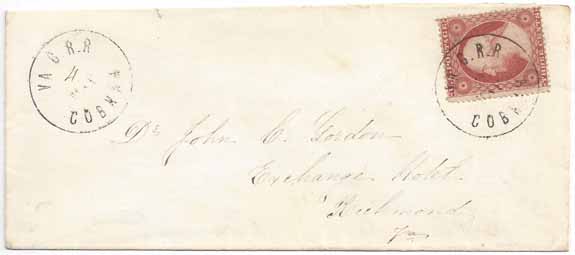 VA C R.R
4
COBHAM
C.R.R
COBH
Dr John C. Gordon
Exchange Hotel
Richmond
Va